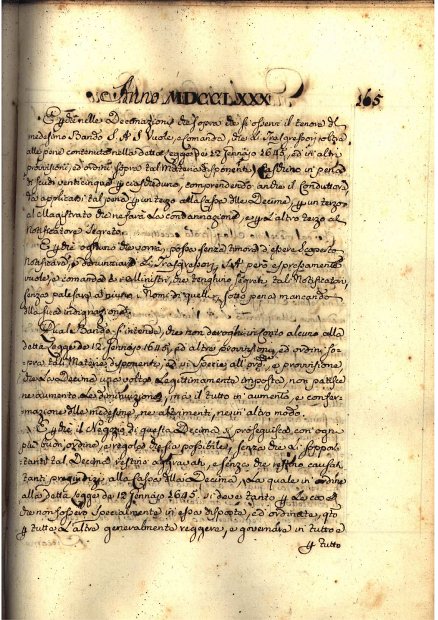 Anno MDCCLXXX 165
E che nelle Decimazioni di sopra che si osservi il tenore del
medesimo Bando S.A.S. Vuole, e Comanda, che ai Trasgressori, oltre
alle pene contenute nella detta Legge de 12 Jennajo 1645, ed in altri
provisioni, ed ordini sopra tal Materia disponenti, Caschino in pena
di scudi venticinque per ciascheduno, comprendendo anche il Conduttore
da applicarsi tal pena per un terzo alla Cassa delle Decime, per un terzo
al Magistrato che ne farà la Condannazione, e per l'altro terzo al
Notificatore Segreto.
E che ogn'uno che vorrà, possa senza timore d'essere scoperto
Notificare, e denunciare i Trasgressori, S.A. però espressamente
vuole, e comanda ai Ministri, che tenghino segreti tali Notificatori,
senza palesare a niuno i Nomi di quelli, sotto pena mancando
della sua indignazione.
Qual Bando s'intenda, che non deroghi in Conto alcuno alla
detta Legge de 12 Jennajo 1645, ed altre provisioni, ed ordini so-
pra tal Materia disponenti, ed in Specie alla provisione,
che la Decima una volta Legittimamente imposta non patisse
ne aumento, ne diminuzione, ma il tutto in aumento, e confer-
mazione delle medesime, ne altrimenti, ne in altro modo.
E che il Negozio di questa Decima si proseguisca con ogni
più buon ordine, e regola che sia possibile, senza che i sottopo-
tal Decima restino aggravati, e senza che restino causati
tanti pregiudizj alla Cassa della Decima, la quale in ordine
alla detta Legge de 12 Jennajo 1645, si deve tanto per le cose
che non fossero specialmente in essa disposte, ed ordinate, qto
per tutte l'altre generalmente reggere, e governare in tutto e
per tutto